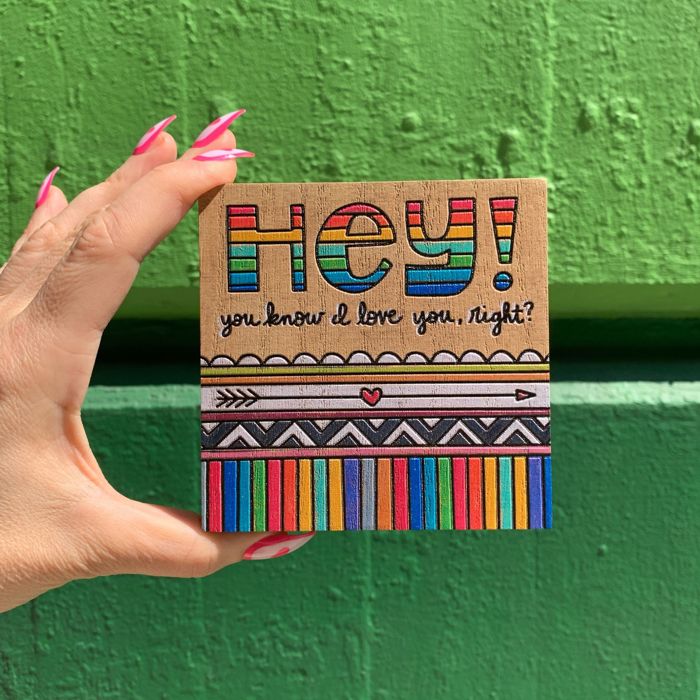 Hey!
you know I love you, right?